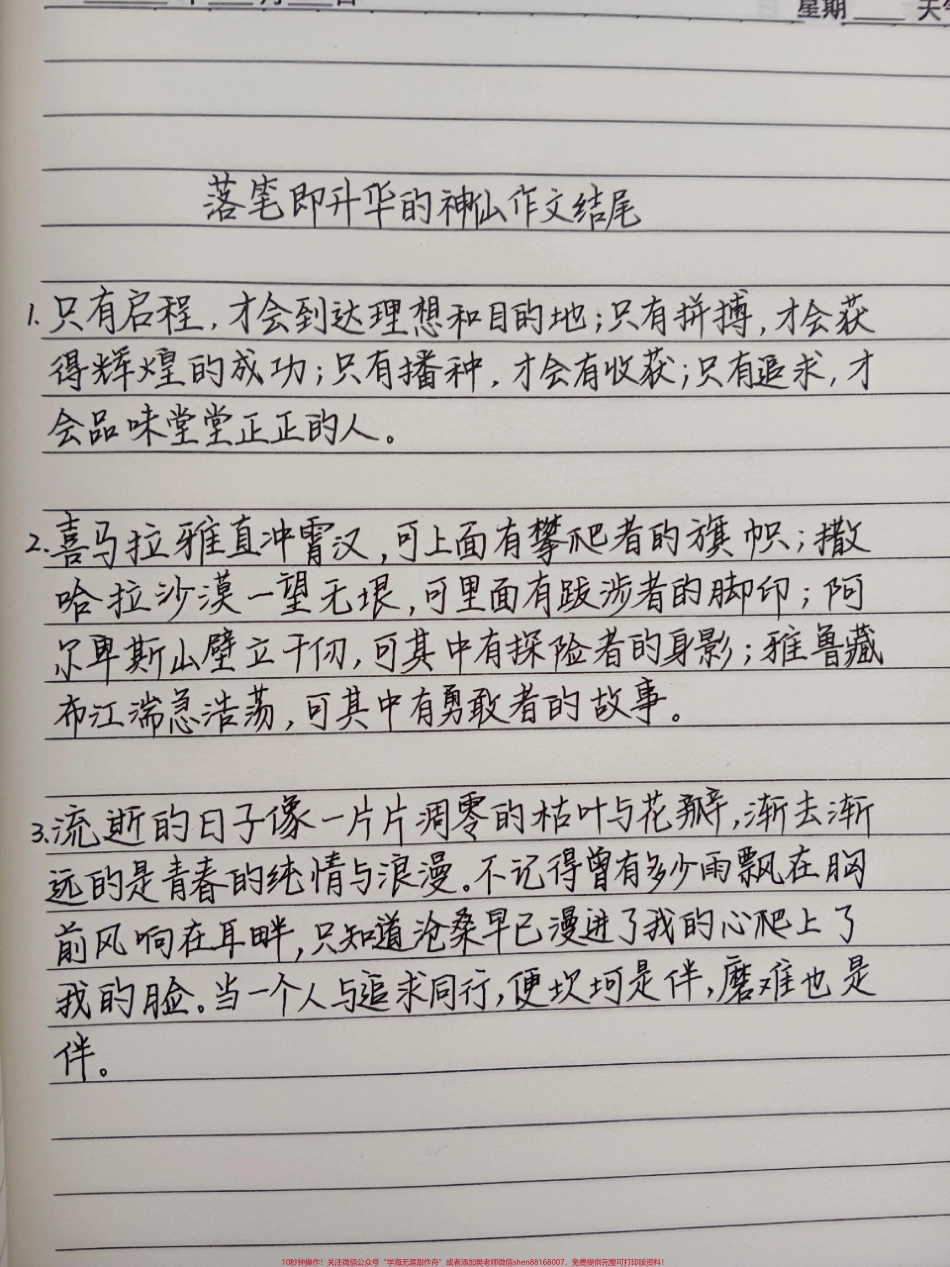 星期 天
落笔即升华的神仙作文结尾
1.只有启程,才会到达理想和目的地;只有拼搏,才会获
得辉煌的成功;只有播种,才会有收获;只有追求,才
会品味堂堂正正的人。
2.喜马拉雅直冲霄汉,可上面有攀爬者的旗帜;撒
哈拉沙漠一望无垠,可里面有跋涉者的脚印;阿
尔卑斯山壁立千仞,可其中有探险者的身影;雅鲁藏
布江湍急浩荡,可其中有勇敢者的故事。
3.流逝的日子像一片片凋零的枯叶与花瓣,渐去渐
远的是青春的纯情与浪漫。不记得曾有多少雨飘在胸
前风响在耳畔,只知道沧桑早已漫进了我的心爬上了
我的脸。当一个人与追求同行,便坎坷是伴,磨难也是
伴。
10秒钟操作!关注微信公众号“学海无涯甜作舟”或者添加樊老师微信shen88168007、免费提供完整可打印版资料!